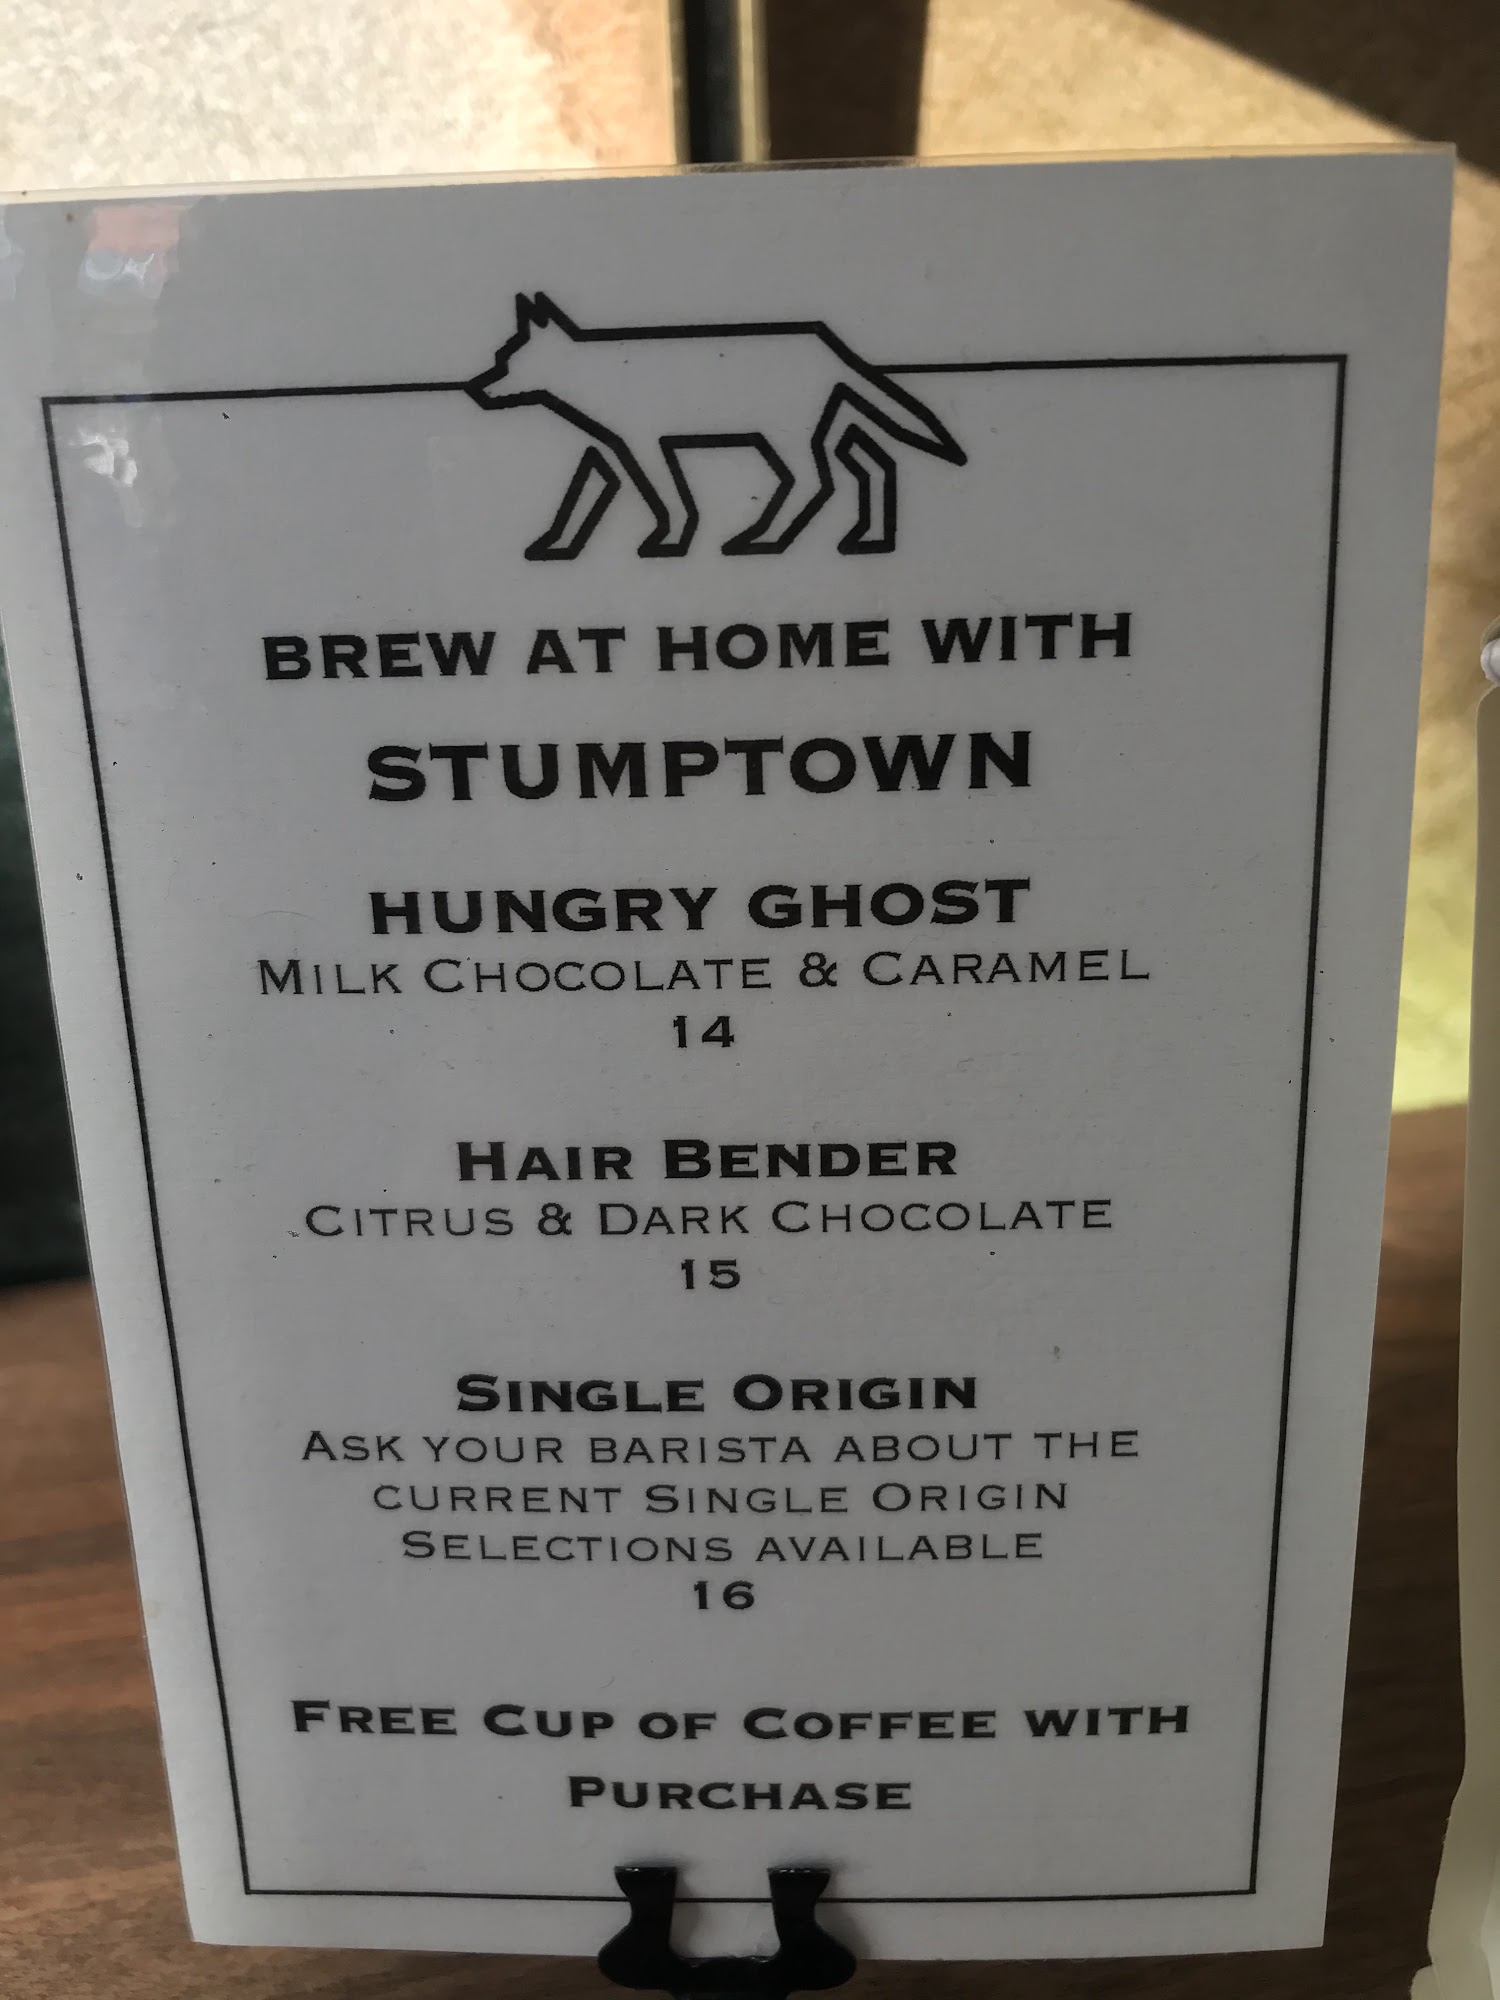 BREW AT HOME WITH
STUMPTOWN
HUNGRY GHOST
MILK CHOCOLATE & CARAMEL
14
HAIR BENDER
CITRUS & DARK CHOCOLATE
15
SINGLE ORIGIN
ASK YOUR BARISTA ABOUT THE
CURRENT SINGLE ORIGIN
SELECTIONS AVAILABLE
16
FREE CUP OF COFFEE WITH
PURCHASE